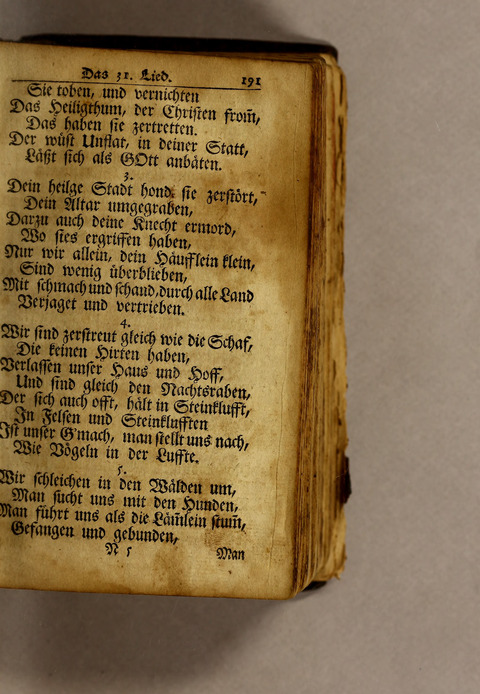 Das 31. Lied. 191
Sie toben, und vernichten
Das Heiligthum, der Christen from̃,
Das haben sie zertretten.
Der wüst Unflat, in deiner Statt,
Läßt sich als GOtt anbäten.
3.
Dein heilge Stadt hond sie zerstört,
Dein Altar umgegraben,
Darzu auch deine Knecht ermord,
Wo sies ergriffen haben,
Nur wir allein, dein Häufflein klein,
Sind wenig überblieben,
Mit schmach und schand, durch alle Land
Verjaget und vertrieben.
4.
Wir sind zerstreut gleich wie die Schaf,
Die keinen Hirten haben,
Verlassen unser Haus und Hoff,
Und sind gleich den Nachtsraben,
Der sich auch offt, hält in Steinklufft,
In Felsen und Steinklufften
Ist unser G'mach, man stellt uns nach,
Wie Vögeln in der Luffte.
5.
Wir schleichen in den Wälden um,
Man sucht uns mit den Hunden,
Man führt uns als die Läm̃lein stum̃,
Gefangen und gebunden,
N 5 Man